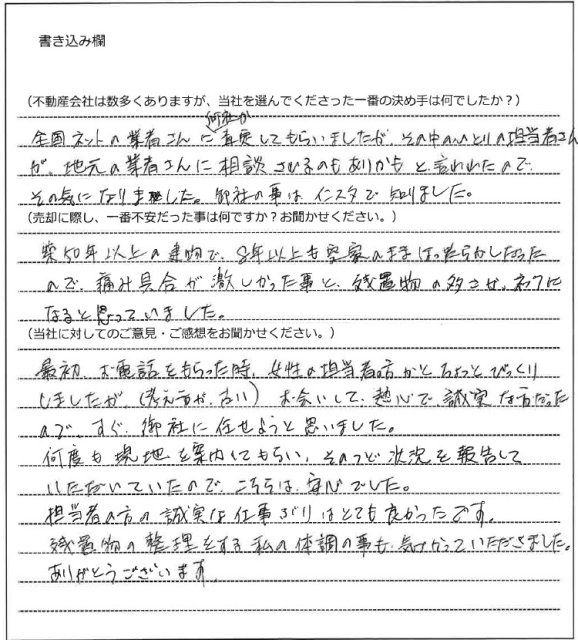 書き込み欄
(不動産会社は数多くありますが、当社を選んでくださった一番の決め手は何でしたか?)
何社か
全国ネットの業者さんに査定してもらいましたが、その中のひとりの担当者さん
が、地元の業者さんに相談されるのもありかもと言われたので
その気になりました。御社の事は、インスタで知りました。
(売却に際し、一番不安だった事は何ですか?お聞かせください。)
築50年以上の建物で、8年以上も空家のままほったらかしだった
ので、痛み具合が激しかった事と、残置物の多さがネックに
なると思っていました。
(当社に対してのご意見・ご感想をお聞かせください。)
最初、お電話をもらった時、女性の担当者の方かとちょっとびっくり
しましたが、(考え方が、古い)お会いして、熱心で、誠実な方だった
ので、すぐ、御社に任せようと思いました。
何度も現地を案内してもらい、そのつど状況を報告して
いただいていたので、こちらは、安心でした。
担当者の方の誠実な仕事ぶりはとても良かったです。
残置物の整理をする私の体調の事も、気づかっていただきました。
ありがとうございます。